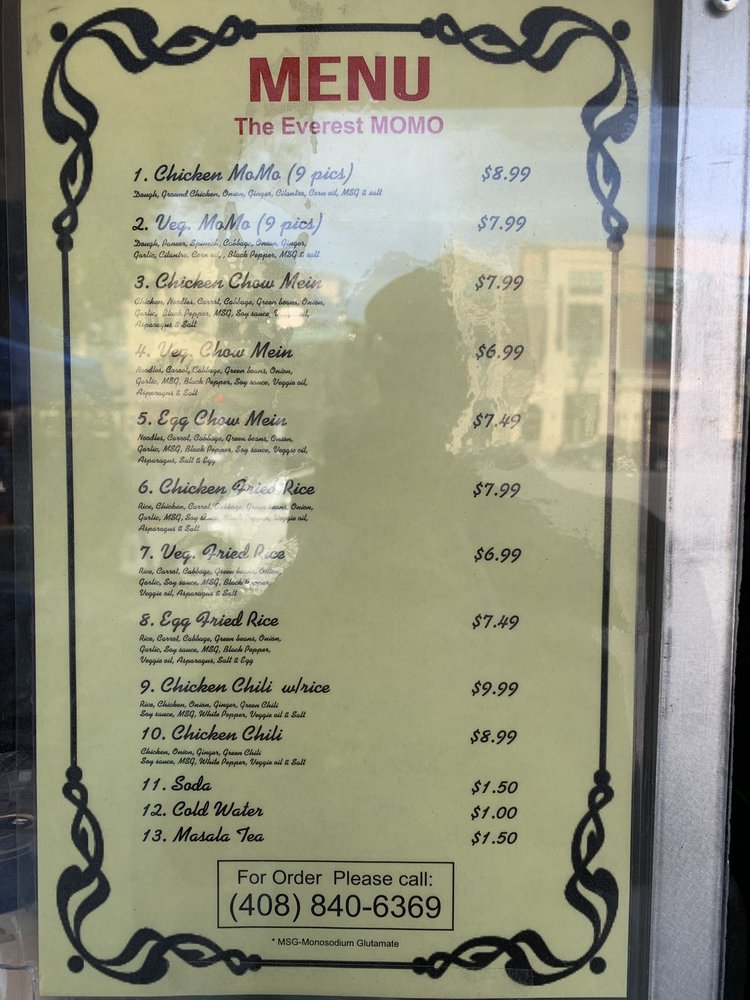 MENU
The Everest MOMO
1. Chicken MoMo (9 pics) $8.99
Dough, Ground Chicken, Onion, Ginger, Cilantro, Corn oil, MSG & salt
2. Veg. MoMo (9 pics) $7.99
Dough, Paneer, Spinach, Cabbage, Onion, Ginger,
Garlic, Cilantro, Corn oil, , Black Pepper, MSG & salt
3. Chicken Chow Mein $7.99
Chicken, Noodles, Carrot, Cabbage, Green beans, Onion,
Garlic, Black Pepper, MSG, Soy sauce, Veggie oil,
Asparagus & Salt
4. Veg. Chow Mein $6.99
Noodles, Carrot, Cabbage, Green beans, Onion,
Garlic, MSG, Black Pepper, Soy sauce, Veggie oil,
Asparagus & Salt
5. Egg Chow Mein $7.49
Noodles, Carrot, Cabbage, Green beans, Onion,
Garlic, MSG, Black Pepper, Soy sauce, Veggie oil,
Asparagus, Salt & Egg
6. Chicken Fried Rice $7.99
Rice, Chicken, Carrot, Cabbage, Green beans, Onion,
Garlic, MSG, Soy sauce, Black Pepper, Veggie oil,
Asparagus & Salt
7. Veg. Fried Rice $6.99
Rice, Carrot, Cabbage, Green beans, Onion,
Garlic, Soy sauce, MSG, Black Pepper,
Veggie oil, Asparagus & Salt
8. Egg Fried Rice $7.49
Rice, Carrot, Cabbage, Green beans, Onion,
Garlic, Soy sauce, MSG, Black Pepper,
Veggie oil, Asparagus, Salt & Egg
9. Chicken Chili w/rice $9.99
Rice, Chicken, Onion, Ginger, Green Chili
Soy sauce, MSG, White Pepper, Veggie oil & Salt
10. Chicken Chili $8.99
Chicken, Onion, Ginger, Green Chili
Soy sauce, MSG, White Pepper, Veggie oil & Salt
11. Soda $1.50
12. Cold Water $1.00
13. Masala Tea $1.50
For Order Please call:
(408) 840-6369
* MSG-Monosodium Glutamate